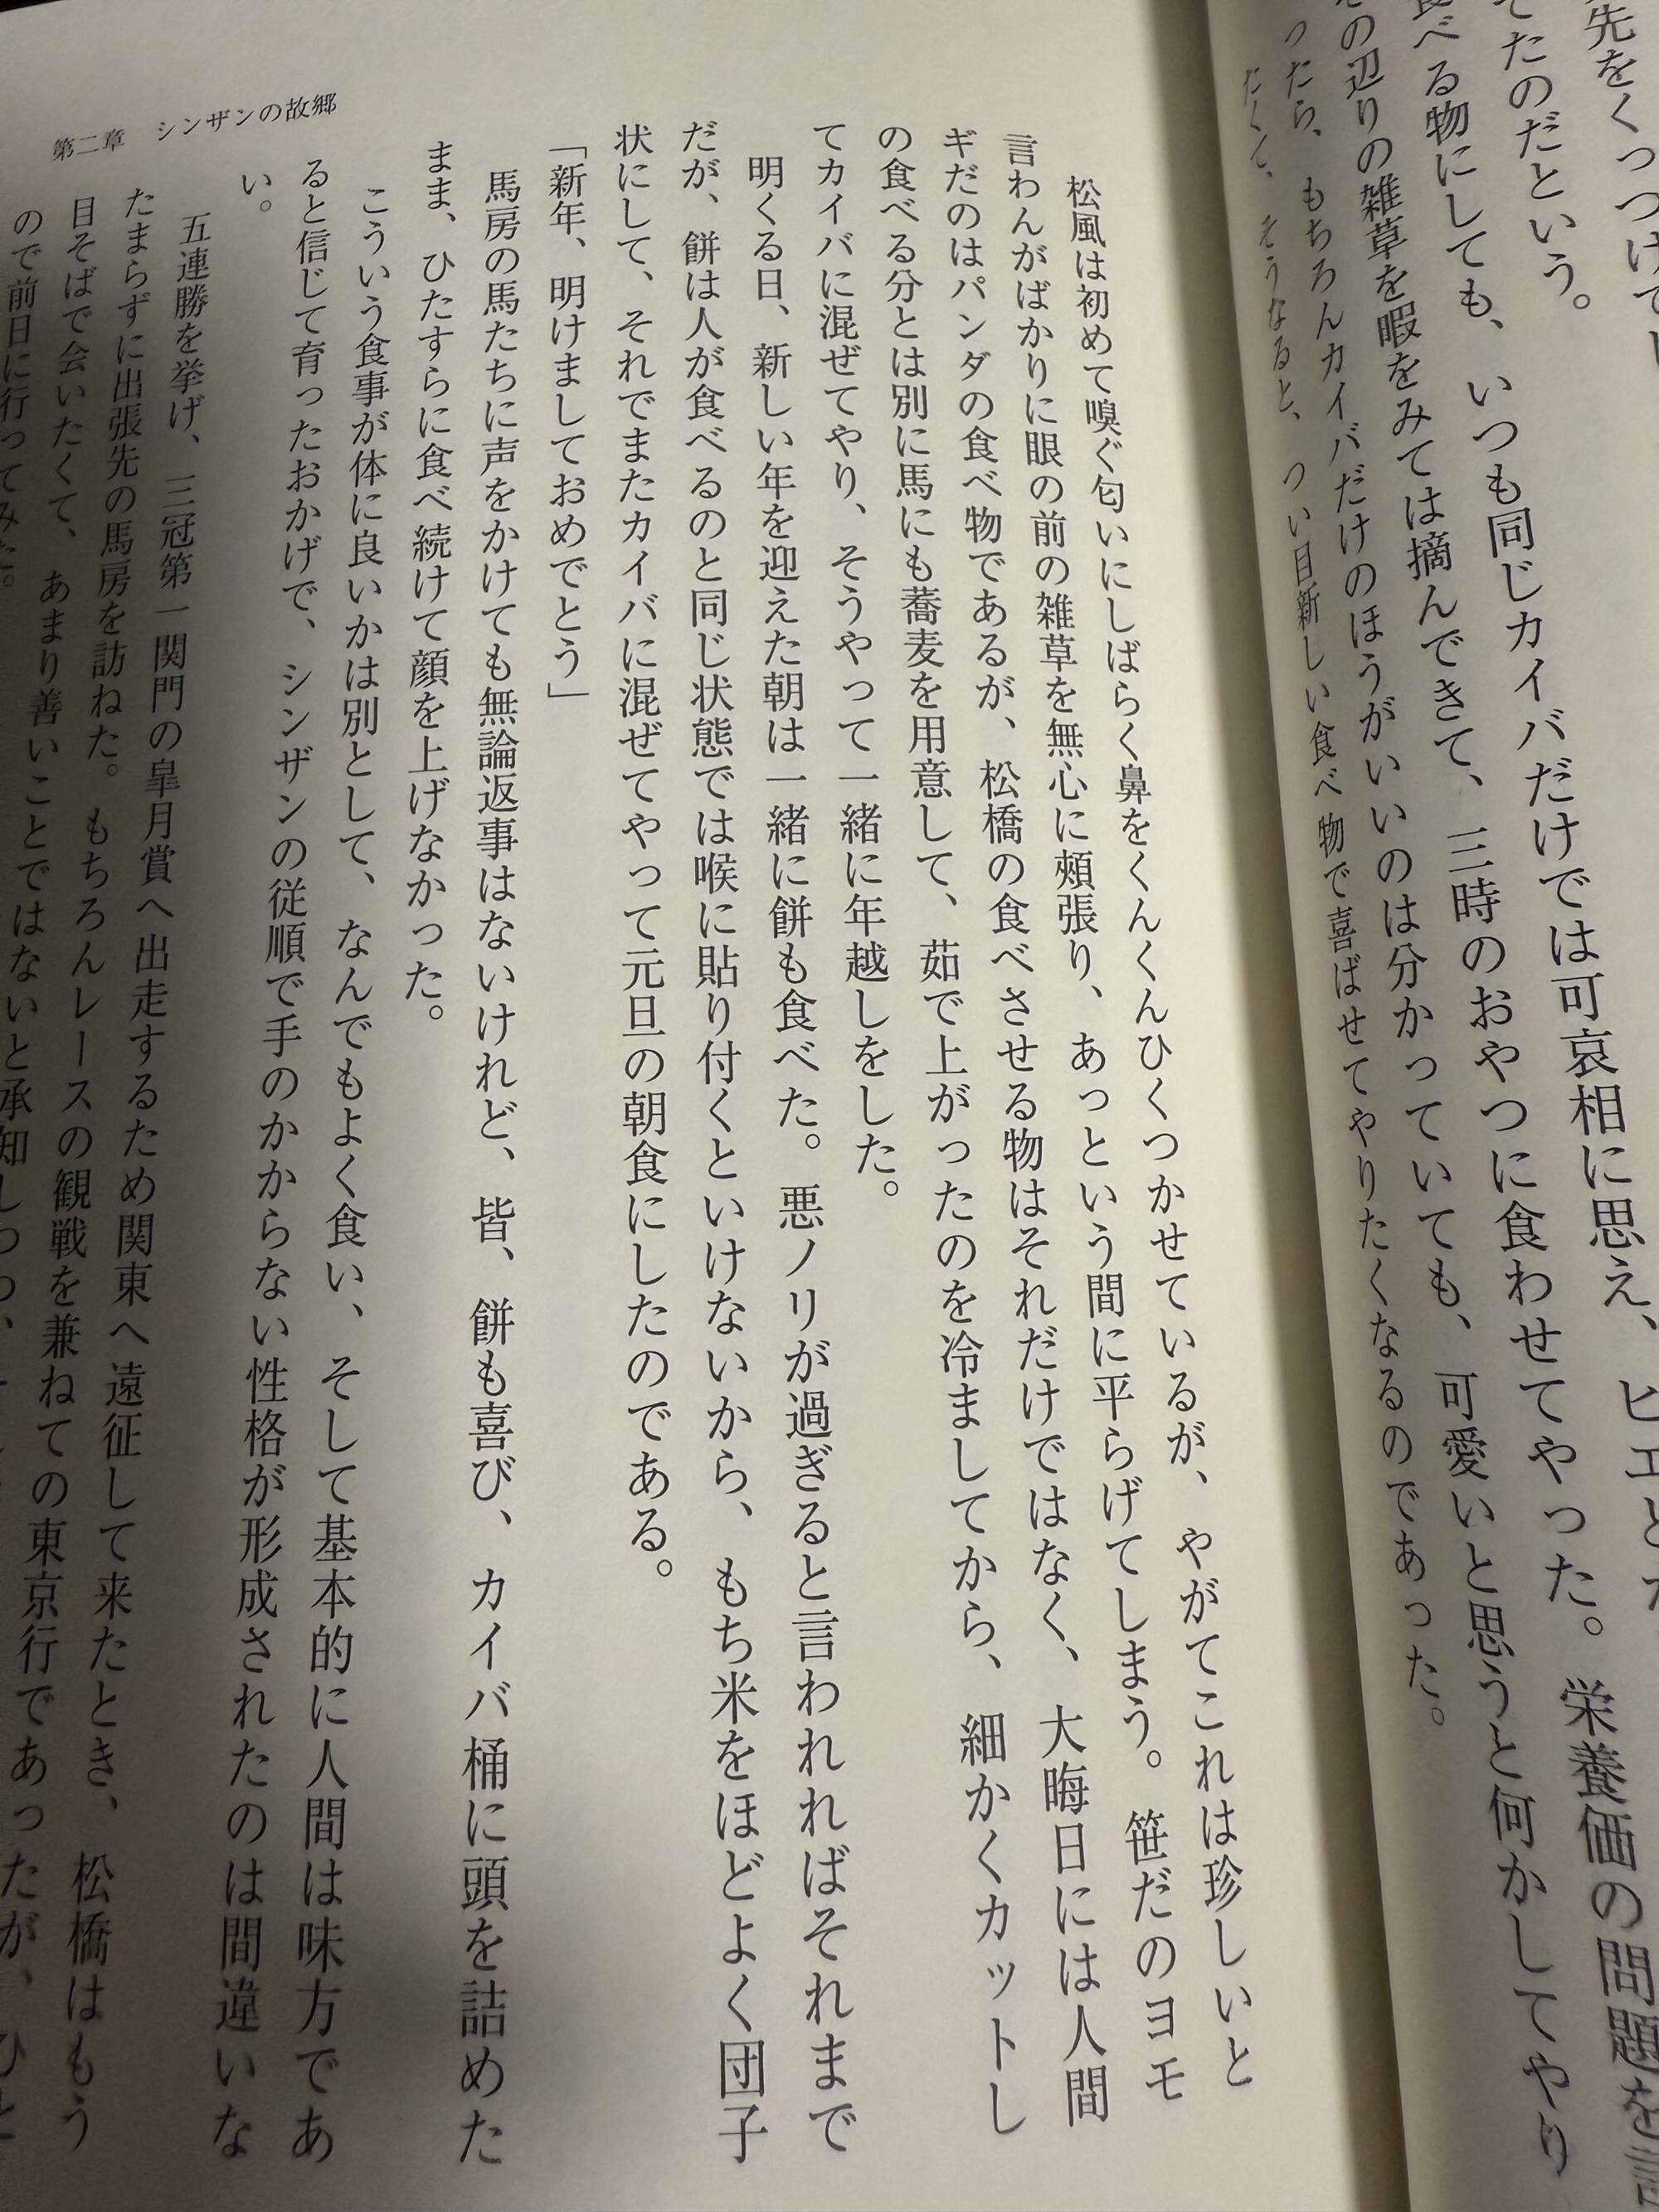 先をくっつけて
てたのだという。
食べる物にしても、いつも同じカイバだけでは可哀相に思え、ヒエと
の辺りの雑草を暇をみては摘んできて、三時のおやつに食わせてやった。栄養価の問題を言
ったら、もちろんカイバだけのほうがいいのは分かっていても、可愛いと思うと何かしてやり
たくて、そうなると、つい目新しい食べ物で喜ばせてやりたくなるのであった。
松風は初めて嗅ぐ匂いにしばらく鼻をくんくんひくつかせているが、やがてこれは珍しいと
言わんがばかりに眼の前の雑草を無心に頰張り、あっという間に平らげてしまう。笹だのヨモ
ギだのはパンダの食べ物であるが、松橋の食べさせる物はそれだけではなく、大晦日には人間
の食べる分とは別に馬にも蕎麦を用意して、茹で上がったのを冷ましてから、細かくカットし
てカイバに混ぜてやり、そうやって一緒に年越しをした。
明くる日、新しい年を迎えた朝は一緒に餅も食べた。悪ノリが過ぎると言われればそれまで
だが、餅は人が食べるのと同じ状態では喉に貼り付くといけないから、もち米をほどよく団子
状にして、それでまたカイバに混ぜてやって元旦の朝食にしたのである。
「新年、明けましておめでとう」
馬房の馬たちに声をかけても無論返事はないけれど、皆、餅も喜び、カイバ桶に頭を詰めた
まま、ひたすらに食べ続けて顔を上げなかった。
こういう食事が体に良いかは別として、なんでもよく食い、そして基本的に人間は味方であ
ると信じて育ったおかげで、シンザンの従順で手のかからない性格が形成されたのは間違いな
い。
五連勝を挙げ、三冠第一関門の皐月賞へ出走するため関東へ遠征して来たとき、松橋はもう
たまらずに出張先の馬房を訪ねた。もちろんレースの観戦を兼ねての東京行であったが、ひと
目そばで会いたくて、あまり善いことではないと承知しつつ、
ので前日に行ってみた。
第二章　シンザンの故郷